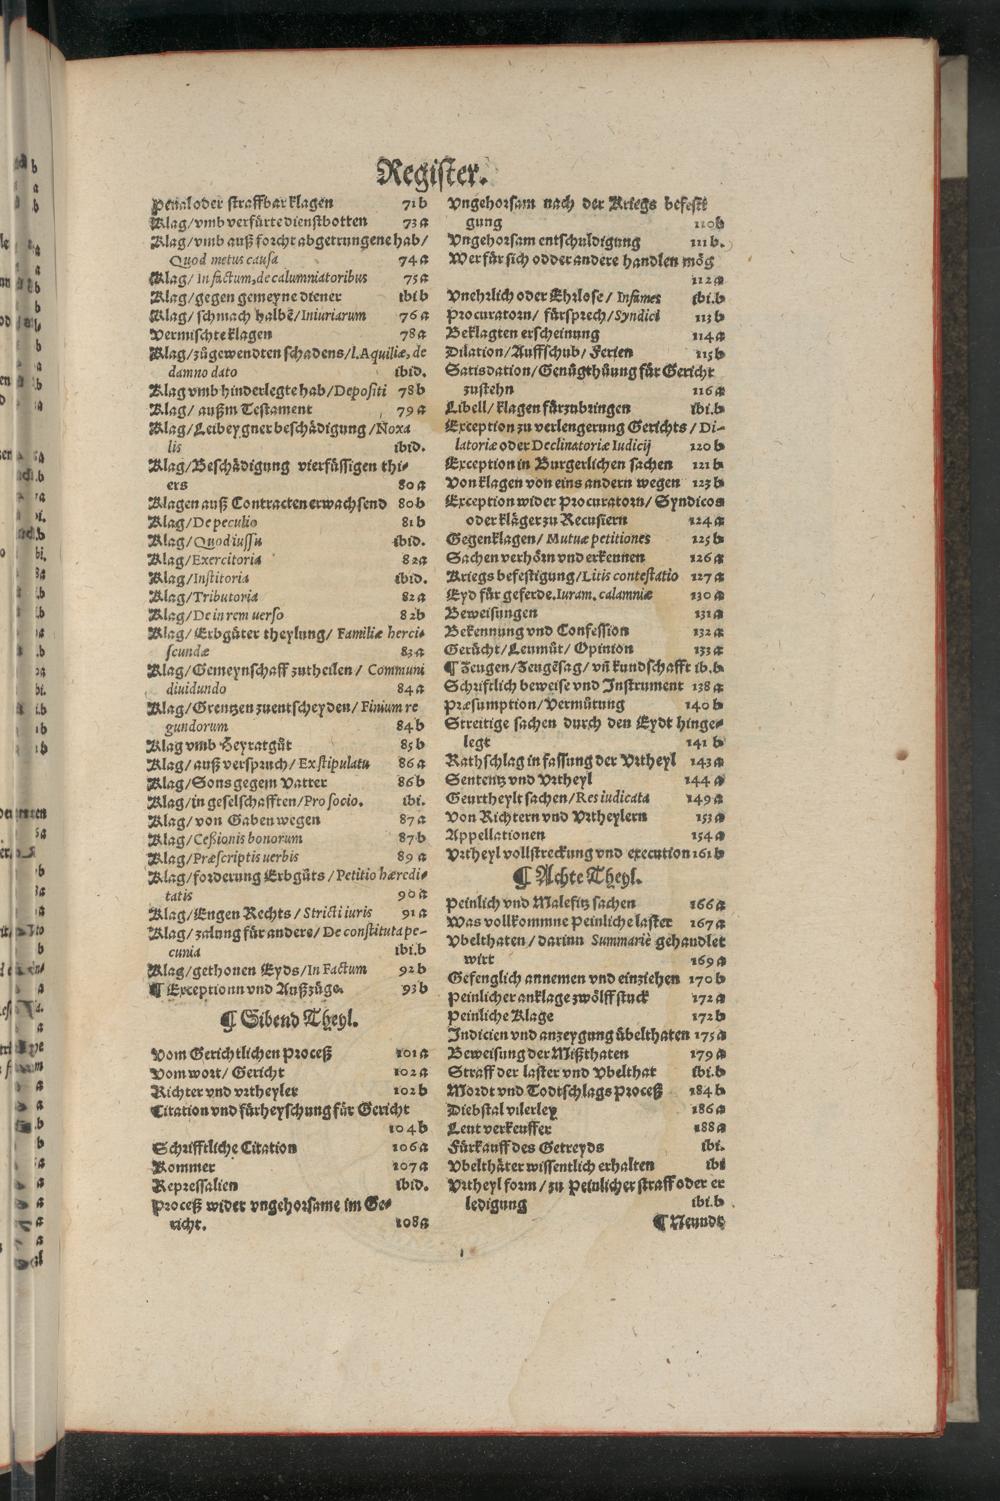 Register.
Penal oder straffbar klagen 71 b
Klag/vmb verfürte dienstbotten 73 a
Klag/vmb auß forcht abgetrungene hab/
Quod metus causa 74 a
Klag/ In factum, de calumniatoribus 75 a
Klag/gegen gemeyne diener ibi b
Klag/ schmach halbē/Iniuriarum 76 a
Vermischte klagen 78 a
Klag/zůgewendten schadens/l. Aquiliæ, de
damno dato ibid.
Klag vmb hinderlegte hab/Depositi 78 b
Klag/ außm Testament 79 a
Klag/Leibeygner beschädigung/Noxa
lis ibid.
Klag/Beschädigung vierfüssigen thi-
ers 80 a
Klagen auß Contracten erwachsend 80 b
Klag/De peculio 81 b
Klag/Quod iussu ibid.
Klag/Exercitoria 82 a
Klag/Institoria ibid.
Klag/Tributoria 82 a
Klag/De in rem uerso 82 b
Klag/Erbgüter theylung/ Familiæ herci-
scundæ 83 a
Klag/Gemeynschaff zutheilen/ Communi
diuidundo 84 a
Klag/Grentzen zuentscheyden/Finium re
gundorum 84 b
Klag vmb Heyratgůt 85 b
Klag/auß verspruch/Ex stipulatu 86 a
Klag/Sons gegem Vatter 86 b
Klag/in geselschafften/Pro socio. ibi.
Klag/von Gaben wegen 87 a
Klag/Cessionis bonorum 87 b
Klag/Præscriptis uerbis 89 a
Klag/forderung Erbgůts/Petitio hæredi-
tatis 90 a
Klag/Engen Rechts/Stricti iuris 91 a
Klag/zalung für andere/De constituta pe-
cunia ibi.b
Klag/gethonen Eyds/In Factum 92 b
¶ Exceptionn vnd Außzüge. 93 b
¶ Sibend Theyl.
Vom Gerichtlichen Proceß 101 a
Vom wort/ Gericht 102 a
Richter vnd vrtheyler 102 b
Citation vnd fürheyschung für Gericht
104 b
Schrifftliche Citation 106 a
Kommer 107 a
Repressalien ibid.
Proceß wider vngehorsame im Ge-
richt. 108 a
Vngehorsam nach der Kriegs befesti
gung 110 b
Vngehorsam entschuldigung 111 b.
Wer für sich odder andere handlen mög
112 a
Vnehrlich oder Ehrlose/ Infames ibi.b
Procuratorn/ fürsprech/Syndici 113 b
Beklagten erscheinung 114 a
Dilation/Auffschub/ Ferien 115 b
Satisdation/Genůgthůung für Gericht
zustehn 116 a
Libell/klagen fürzubringen ibi.b
Exception zu verlengerung Gerichts/ Di-
latoriæ oder Declinatoriæ Iudicij 120 b
Exception in Burgerlichen sachen 121 b
Von klagen von eins andern wegen 123 b
Exception wider Procuratorn/Syndicos
oder kläger zu Recusiern 124 a
Gegenklagen/ Mutuæ petitiones 125 b
Sachen verhörn vnd erkennen 126 a
Kriegs befestigung/Litis contestatio 127 a
Eyd für geferde.Iuram. calamniæ 130 a
Beweisungen 131 a
Bekennung vnd Confession 132 a
Gerücht/Leumüt/ Opinion 133 a
¶ Zeugen/Zeugēsag/ vn̄ kundschafft ib.b
Schriftlich beweise vnd Instrument 138 a
Præsumption/Vermůtung 140 b
Streitige sachen durch den Eydt hinge-
legt 141 b
Rathschlag in fassung der Vrtheyl 143 a
Sententz vnd Vrtheyl 144 a
Geurtheylt sachen/Res iudicata 149 a
Von Richtern vnd Vrtheylern 153 a
Appellationen 154 a
Vrtheyl vollstreckung vnd execution 161 b
¶ Achte Theyl.
Peinlich vnd Malefitz sachen 166 a
Was vollkommne Peinliche laster 167 a
Vbelthaten/ darinn Summariè gehandlet
wirt 169 a
Gefenglich annemen vnd einziehen 170 b
Peinlicher anklage zwölff stuck 172 a
Peinliche Klage 172 b
Indicien vnd anzeygung übelthaten 175 a
Beweisung der Mißthaten 179 a
Straff der laster vnd Vbelthat ibi.b
Mordt vnd Todtschlags Proceß 184 b
Diebstal vilerley 186 a
Leut verkeuffer 188 a
Fürkauff des Getreyds ibi.
Vbelthäter wissentlich erhalten ibi
Vrtheyl form/ zu Peinlicher straff oder er
ledigung ibi.b
¶ Neundt